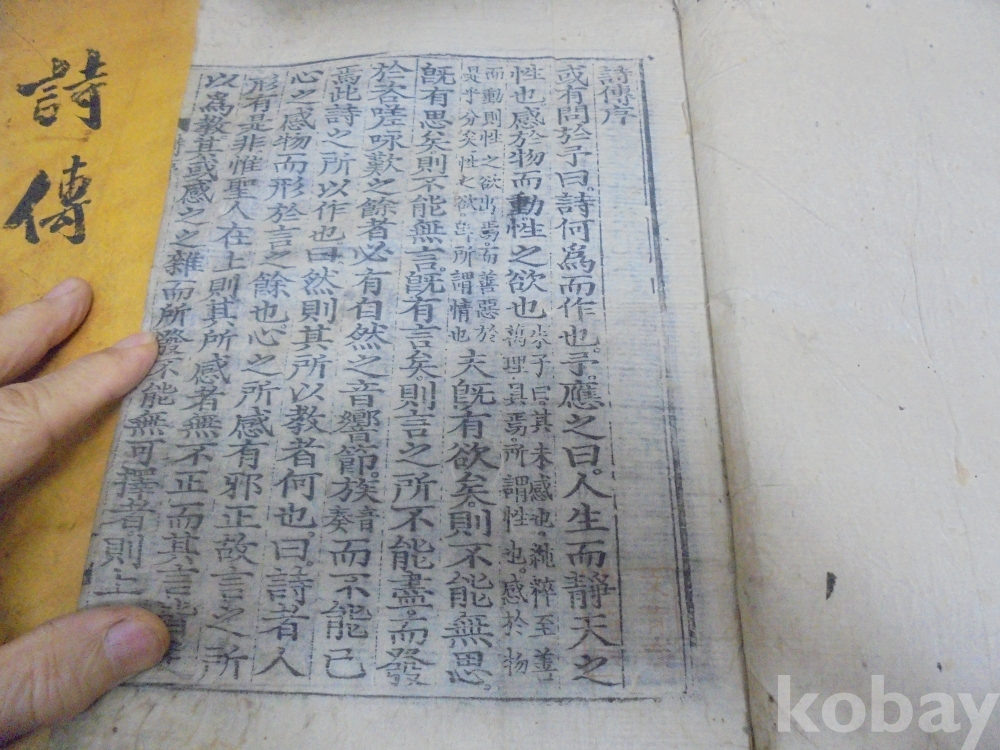 詩傳序
或有問於予曰。詩何爲而作也。予應之曰。人生而靜天之
性也感於物而動性之欲也
朱子曰。其未感也。純粹至善。
萬理具焉。所謂性也。感於物
而動則性之欲出焉。而善惡於
是乎分矣性之欲。卽所謂情也
夫旣有欲矣。則不能無思。
旣有思矣則不能無言。旣有言矣則言之所不能盡。而發
於咨嗟咏歎之餘者必有自然之音響節。族音奏而不能已
焉此詩之所以作也曰然則其所以教者何也。曰。詩者人
心之感物而形於言之餘也。心之所感有邪正故言之所
形有是非惟聖人在上則其所感者無不正而其言皆
以爲教其或感之之雜而所發不能無可擇者。則上
詩傳
kobay